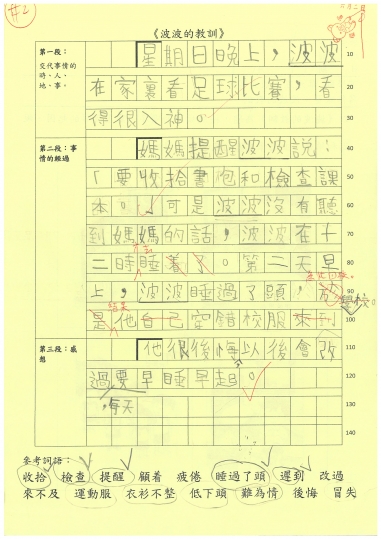 #2
《波波的教訓》
第一段：
交代事情的
時、人、
地、事。
星期日晚上，波波
在家裏看足球比賽，看
得很入神。
第二段：事
情的經過
媽媽提醒波波說：
「要收拾書包和檢查課
本。」可是波波沒有聽
到媽媽的話，波波在十
二時睡着了。第二天早
上，波波睡過了頭，
結果
學校。
是他自己穿錯校服來到
第三段：感
想
他很後悔以後會改
過要早睡早起。
每天
10
20
30
40
50
60
70
80
90
100
110
120
130
140
參考詞語：
收拾 檢查 提醒 顧着 疲倦 睡過了頭 遲到 改過
來不及 運動服 衣衫不整 低下頭 難為情 後悔 冒失